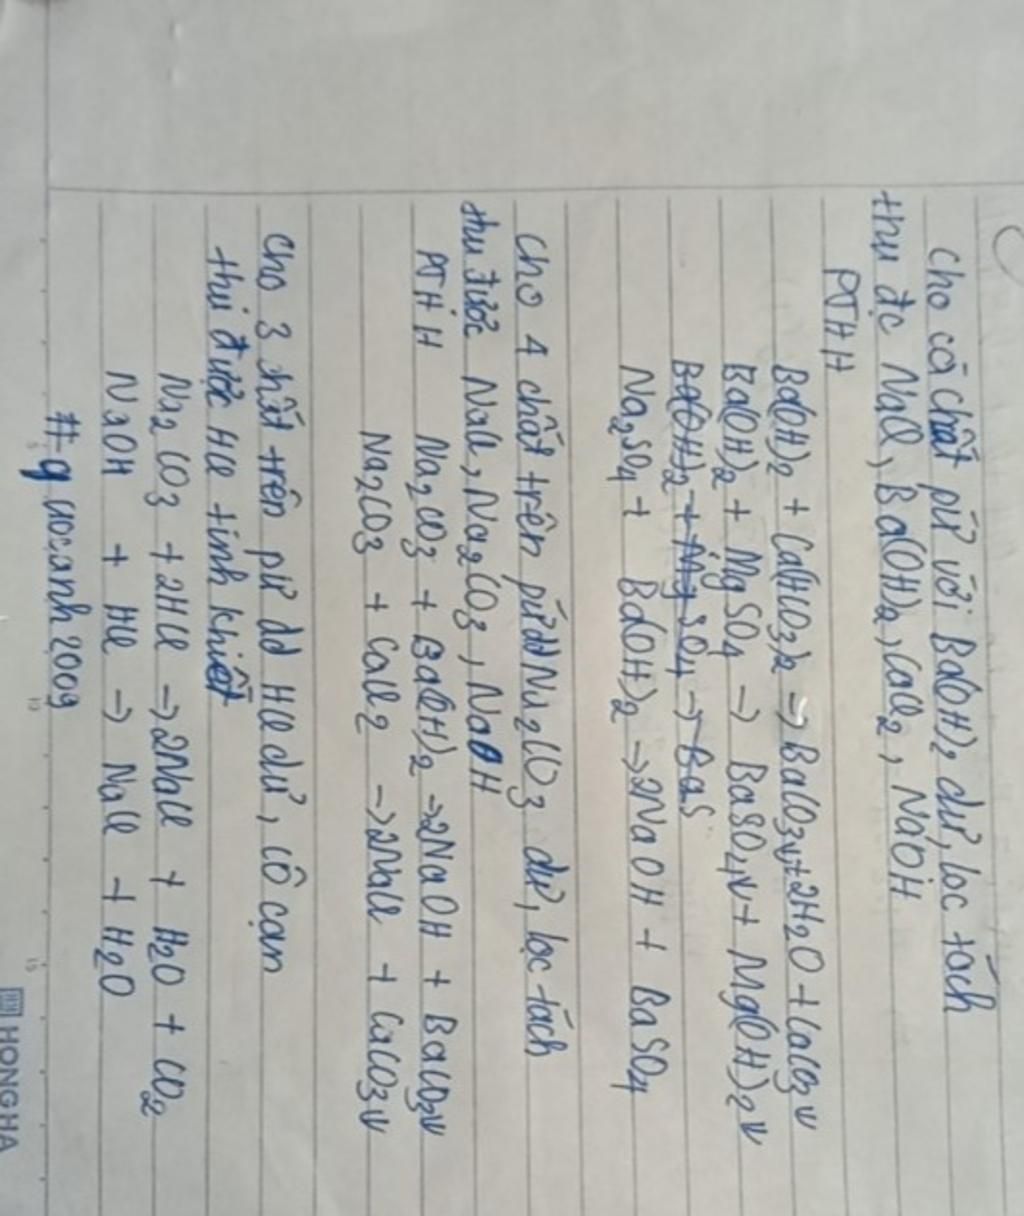 Cho cả chất pứ với Ba(OH)2 dư, lọc tách
thu đc NaCl, Ba(OH)2, CaCl2, NaOH
PTHH
Ba(OH)2 + Ca(HCO3)2 → BaCO3↓ + 2H2O + CaCO3↓
Ba(OH)2 + MgSO4 → BaSO4↓ + Mg(OH)2↓
Ba(OH)2 + MgSO4 → BaS
Na2SO4 + Ba(OH)2 → 2NaOH + BaSO4
Cho 4 chất trên pứ dd Na2CO3 dư, lọc tách
thu được NaCl, Na2CO3, NaOH
PTHH Na2CO3 + Ba(OH)2 → 2NaOH + BaCO3↓
Na2CO3 + CaCl2 → 2NaCl + CaCO3↓
Cho 3 chất trên pứ dd HCl dư, cô cạn
thu được HCl tinh khiết
Na2CO3 + 2HCl → 2NaCl + H2O + CO2
NaOH + HCl → NaCl + H2O
#guocanh2009
HONG HA